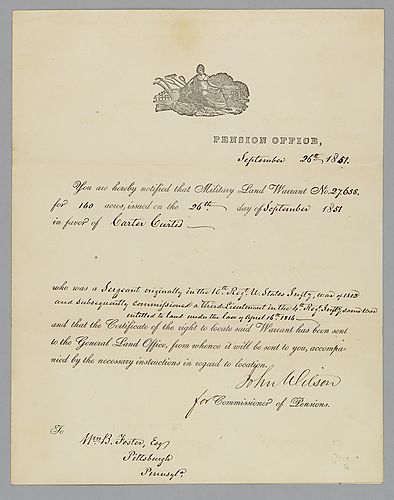 PENSION OFFICE,
September 26th 1851.
You are hereby notified that Military Land Warrant No. 27,635.
for 160 acres, issued on the 26th day of September 1851
in favor of Carter Curtis
who was a Sergeant originally in the 16th Regt U. States Infty, War of 1812
and subsequently commissioned a third Lieutenant in the 4th Regt Infty same War
entitled to land under the law of April 16th 1816.
and that the Certificate of the right to locate said Warrant has been sent
to the General Land Office, from whence it will be sent to you, accompa-
nied by the necessary instructions in regard to location.
John Wilson
for Commissioner of Pensions.
To
Wm B. Foster, Esq
Pittsburgh
Pennsyla.